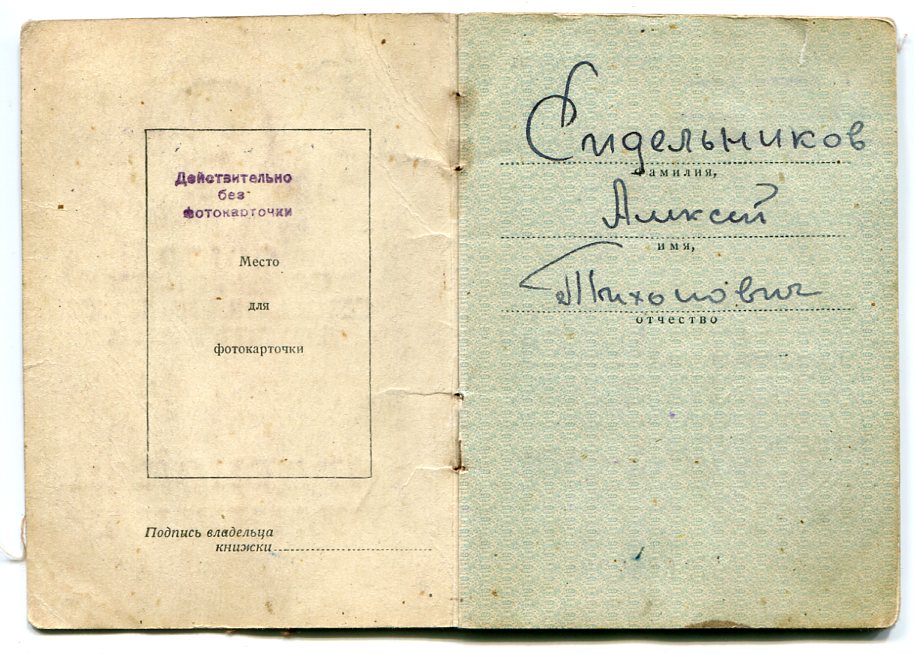 Действительно
без
фотокарточки
Место
для
фотокарточки
Подпись владельца
книжки
Сидельников
фамилия,
Алексей
имя,
Тихонович
отчество